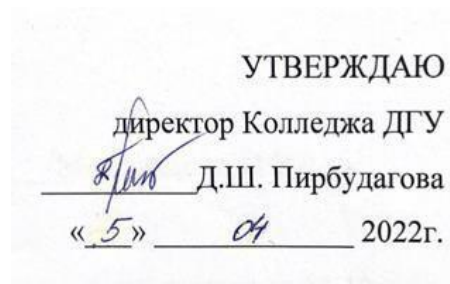 УТВЕРЖДАЮ
директор Колледжа ДГУ
Д.Ш. Пирбудагова
« 5 » 04 2022г.